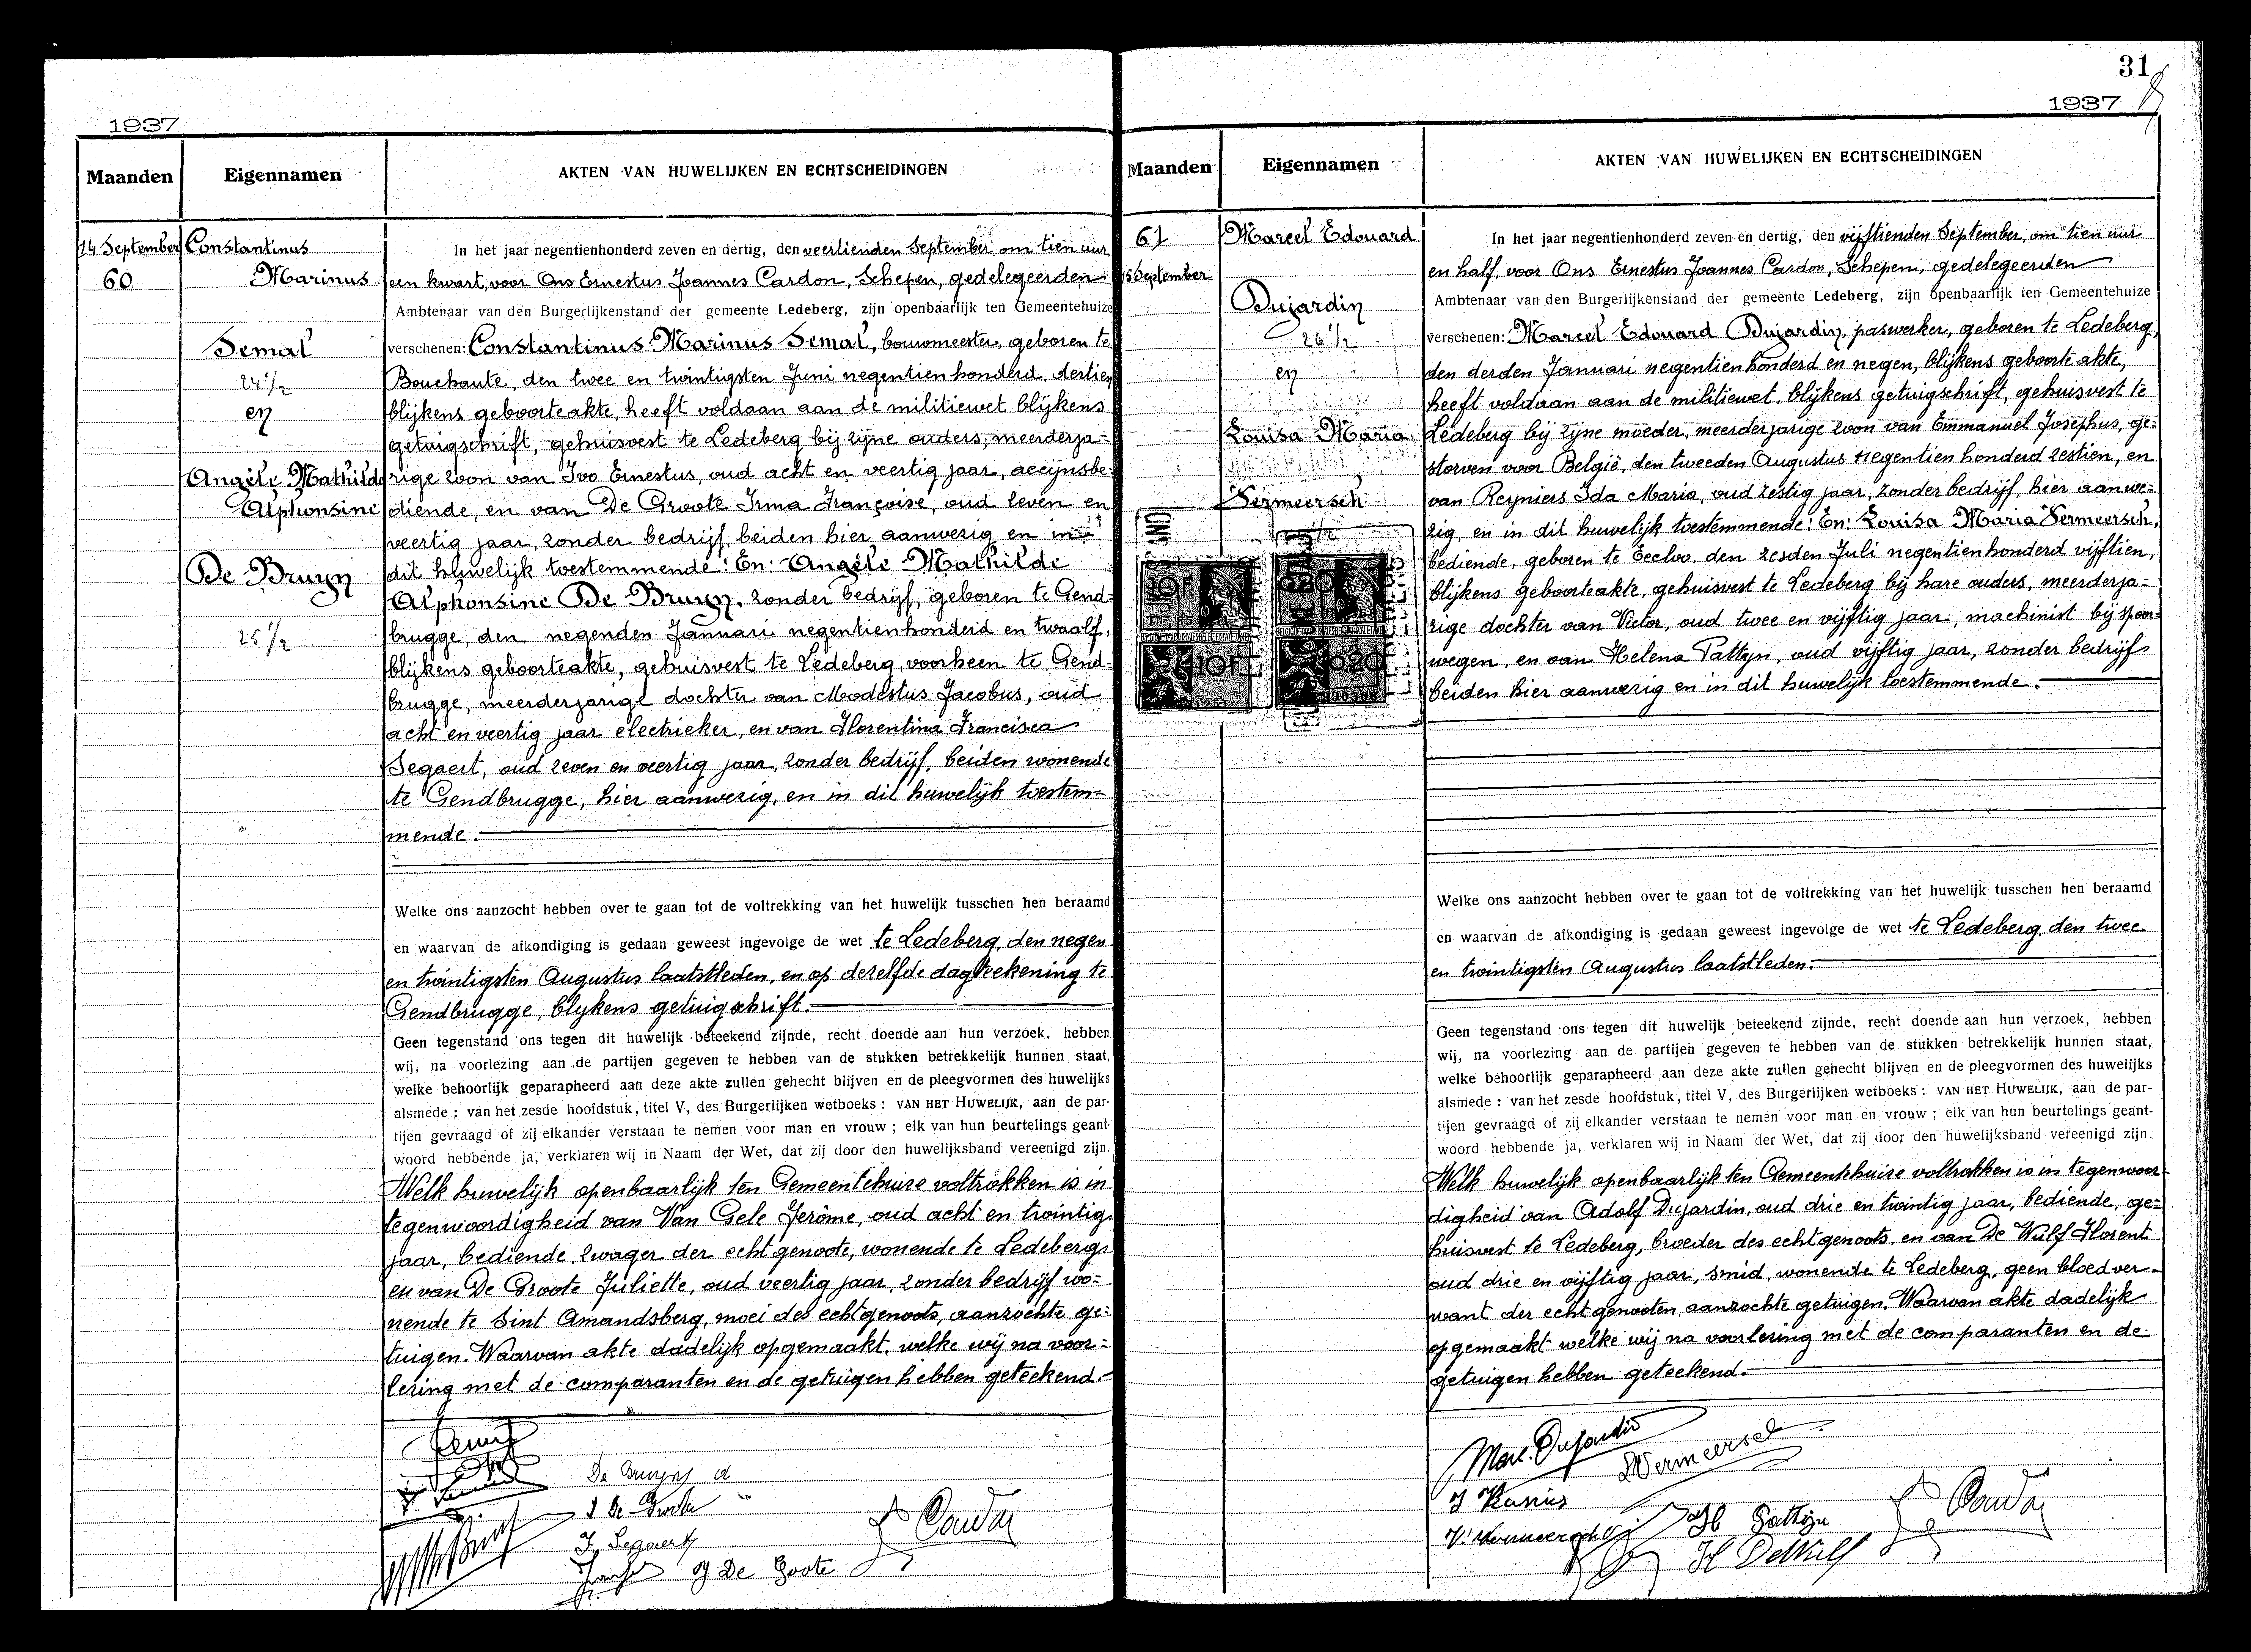 1937
Maanden
Eigennamen
AKTEN VAN HUWELIJKEN EN ECHTSCHEIDINGEN
14 September
60
Constantinus
Marinus
Semal
24 1/2
en
Angèle Mathilde
Alphonsine
De Bruyn
25 1/2
In het jaar negentienhonderd zeven en dertig, den veertienden September, om tien uur
een kwart, voor Ons Ernestus Joannes Cardon, Schepen, gedelegeerden
Ambtenaar van den Burgerlijkenstand der gemeente Ledeberg, zijn openbaarlijk ten Gemeentehuize
verschenen: Constantinus Marinus Semal, bouwmeester, geboren te
Bouchaute, den twee en twintigsten Juni negentienhonderd dertien
blijkens geboorteakte, heeft voldaan aan de militiewet blijkens
getuigschrift, gehuisvest te Ledeberg bij zijne ouders, meerderja-
rige zoon van Ivo Ernestus, oud acht en veertig jaar, accijnsbe-
diende, en van De Groote Irma Françoise, oud zeven en
veertig jaar, zonder bedrijf, beiden hier aanwezig en in
dit huwelijk toestemmende! En: Angèle Mathilde
Alphonsine De Bruyn, zonder bedrijf, geboren te Gend-
brugge, den negenden Januari negentienhonderd en twaalf,
blijkens geboorteakte, gehuisvest te Ledeberg, voorheen te Gend-
brugge, meerderjarige dochter van Modestus Jacobus, oud
acht en veertig jaar electrieker, en van Florentina Francisca
Segaert, oud zeven en veertig jaar, zonder bedrijf, beiden wonende
te Gendbrugge, hier aanwezig, en in dit huwelijk toestem-
mende.
Welke ons aanzocht hebben over te gaan tot de voltrekking van het huwelijk tusschen hen beraamd
en waarvan de afkondiging is gedaan geweest ingevolge de wet te Ledeberg, den negen
en twintigsten Augustus laatstleden, en op dezelfde dagteekening te
Gendbrugge, blykens getuigschrift.
Geen tegenstand ons tegen dit huwelijk beteekend zijnde, recht doende aan hun verzoek, hebben
wij, na voorlezing aan de partijen gegeven te hebben van de stukken betrekkelijk hunnen staat,
welke behoorlijk geparapheerd aan deze akte zullen gehecht blijven en de pleegvormen des huwelijks
alsmede : van het zesde hoofdstuk, titel V, des Burgerlijken wetboeks : VAN HET HUWELIJK, aan de par-
tijen gevraagd of zij elkander verstaan te nemen voor man en vrouw ; elk van hun beurtelings geant-
woord hebbende ja, verklaren wij in Naam der Wet, dat zij door den huwelijksband vereenigd zijn.
Welk huwelijk openbaarlijk ten Gemeentehuize voltrokken is in
tegenwoordigheid van Van Gele Jerôme, oud acht en twintig
jaar, bediende, zwager der echtgenoote, wonende te Ledeberg
en van De Groote Juliette, oud veertig jaar, zonder bedrijf wo-
nende te Sint Amandsberg, moei des echtgenoots, aanzochte ge-
tuigen. Waarvan akte dadelijk opgemaakt, welke wij na voor-
lezing met de comparanten en de getuigen hebben geteekend.
De Bruyn A
I De Groote
F. Segaert
J De Goote
Cardon
31
1937
Maanden
Eigennamen
AKTEN VAN HUWELIJKEN EN ECHTSCHEIDINGEN
61
15 September
Marcel Edouard
Dujardin
26 1/2
en
Louisa Maria
Vermeersch
10F
10F
020
In het jaar negentienhonderd zeven en dertig, den vijftienden September, om tien uur
en half, voor Ons Ernestus Joannes Cardon, Schepen, gedelegeerden
Ambtenaar van den Burgerlijkenstand der gemeente Ledeberg, zijn openbaarlijk ten Gemeentehuize
verschenen: Marcel Edouard Dujardin, paswerker, geboren te Ledeberg,
den derden Januari negentienhonderd en negen, blijkens geboorteakte,
heeft voldaan aan de militiewet, blijkens getuigschrift, gehuisvest te
Ledeberg bij zijne moeder, meerderjarige zoon van Emmanuel Josephus, ge-
storven voor België, den tweeden Augustus negentienhonderd zestien, en
van Reyniers Ida Maria, oud zestig jaar, zonder bedrijf, hier aanwe-
zig, en in dit huwelijk toestemmende! En: Louisa Maria Vermeersch,
bediende, geboren te Eecloo, den zesden Juli negentienhonderd vijftien,
blijkens geboorteakte, gehuisvest te Ledeberg bij hare ouders, meerderja-
rige dochter van Victor, oud twee en vijftig jaar, machinist bij spoor-
wegen, en van Helena Pattyn, oud vijftig jaar, zonder bedrijf
beiden hier aanwezig en in dit huwelijk toestemmende.
Welke ons aanzocht hebben over te gaan tot de voltrekking van het huwelijk tusschen hen beraamd
en waarvan de afkondiging is gedaan geweest ingevolge de wet te Ledeberg, den twee
en twintigsten Augustus laatstleden.
Geen tegenstand ons tegen dit huwelijk beteekend zijnde, recht doende aan hun verzoek, hebben
wij, na voorlezing aan de partijen gegeven te hebben van de stukken betrekkelijk hunnen staat,
welke behoorlijk geparapheerd aan deze akte zullen gehecht blijven en de pleegvormen des huwelijks
alsmede : van het zesde hoofdstuk, titel V, des Burgerlijken wetboeks : VAN HET HUWELIJK, aan de par-
tijen gevraagd of zij elkander verstaan te nemen voor man en vrouw ; elk van hun beurtelings geant-
woord hebbende ja, verklaren wij in Naam der Wet, dat zij door den huwelijksband vereenigd zijn.
Welk huwelijk openbaarlijk ten Gemeentehuize voltrokken is in tegenwoor-
digheid van Adolf Dujardin, oud drie en twintig jaar, bediende, ge-
huisvest te Ledeberg, broeder des echtgenoots, en van De Wulf Florent
oud drie en vijftig jaar, smid, wonende te Ledeberg, geen bloedver-
want der echtgenooten, aanzochte getuigen. Waarvan akte dadelijk
opgemaakt welke wij na voorlezing met de comparanten en de
getuigen hebben geteekend.
Marc. Dujardin
LVermeersch
V. Vermeersch
H Pattyn
Fl DeWulf
Cardon